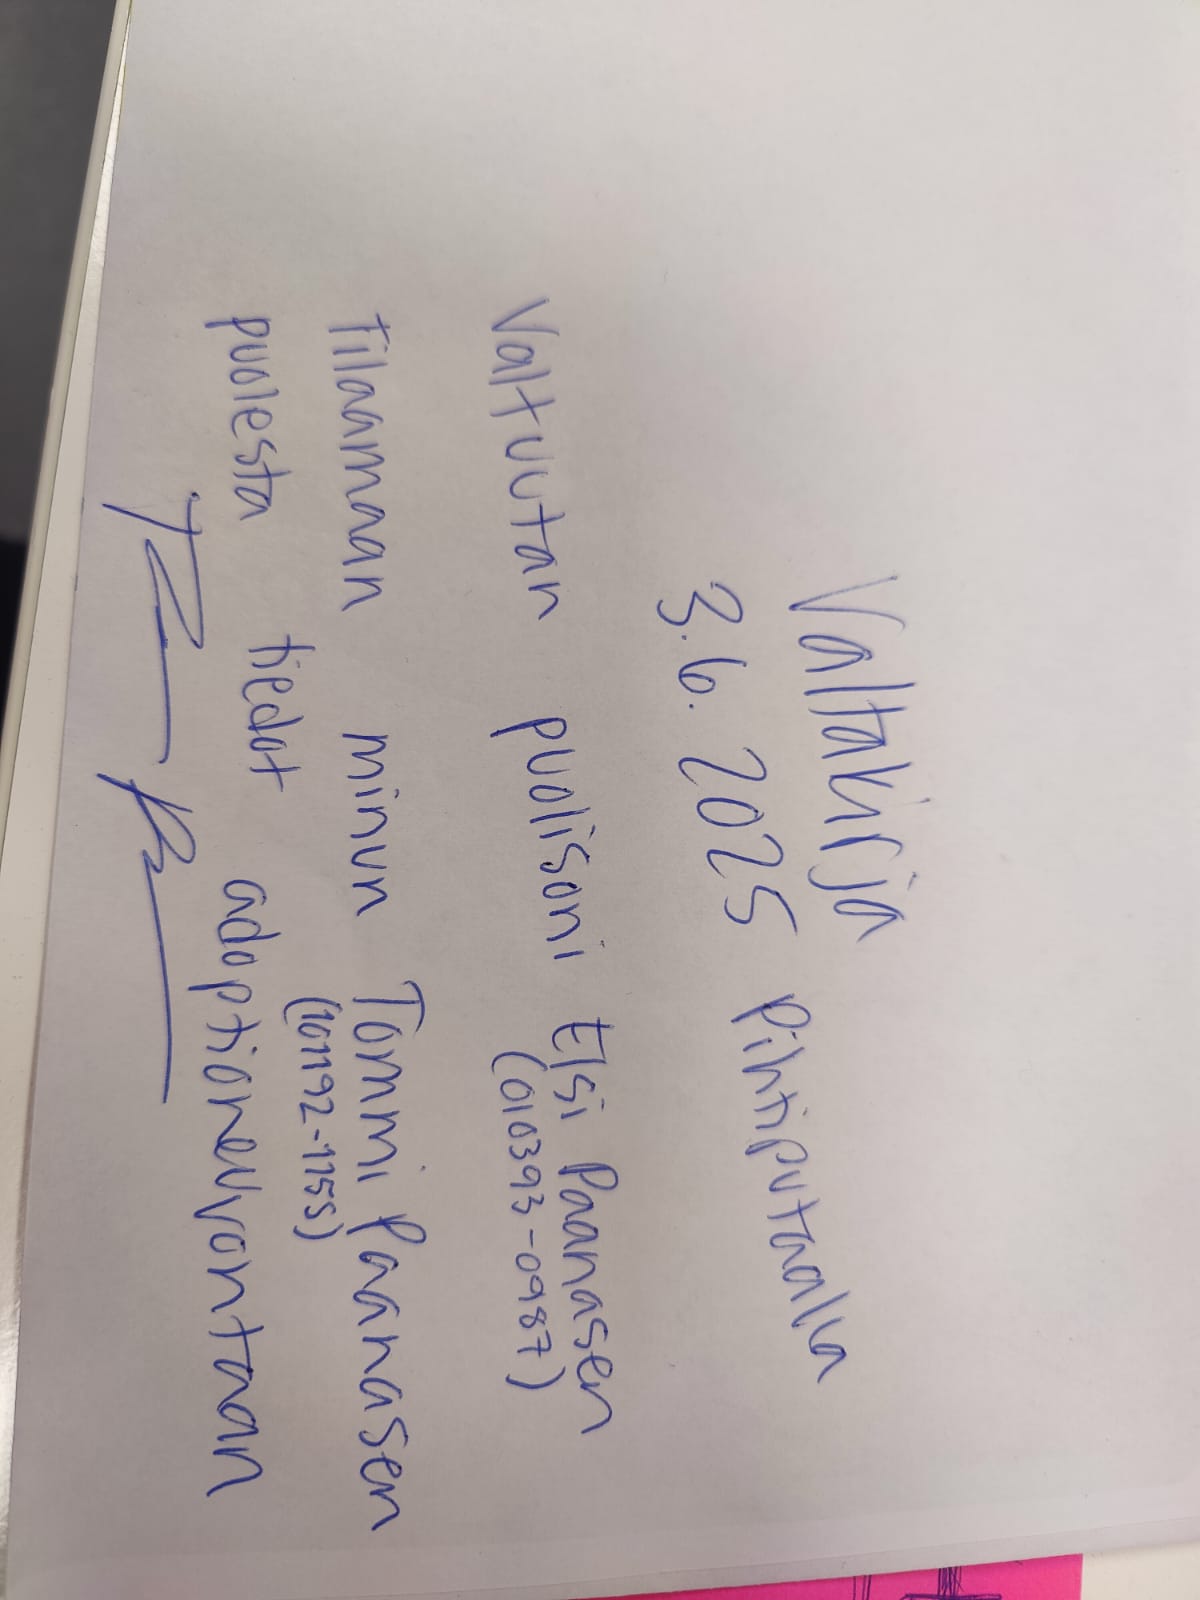 Valtakirja
3.6. 2025 Pihtiputaalla
Valtuutan puolisoni Elsi Paanasen
(010393-0987)
tilaamaan minun Tommi Paanasen
(101192-115S)
puolesta tiedot adoptioneuvontaan